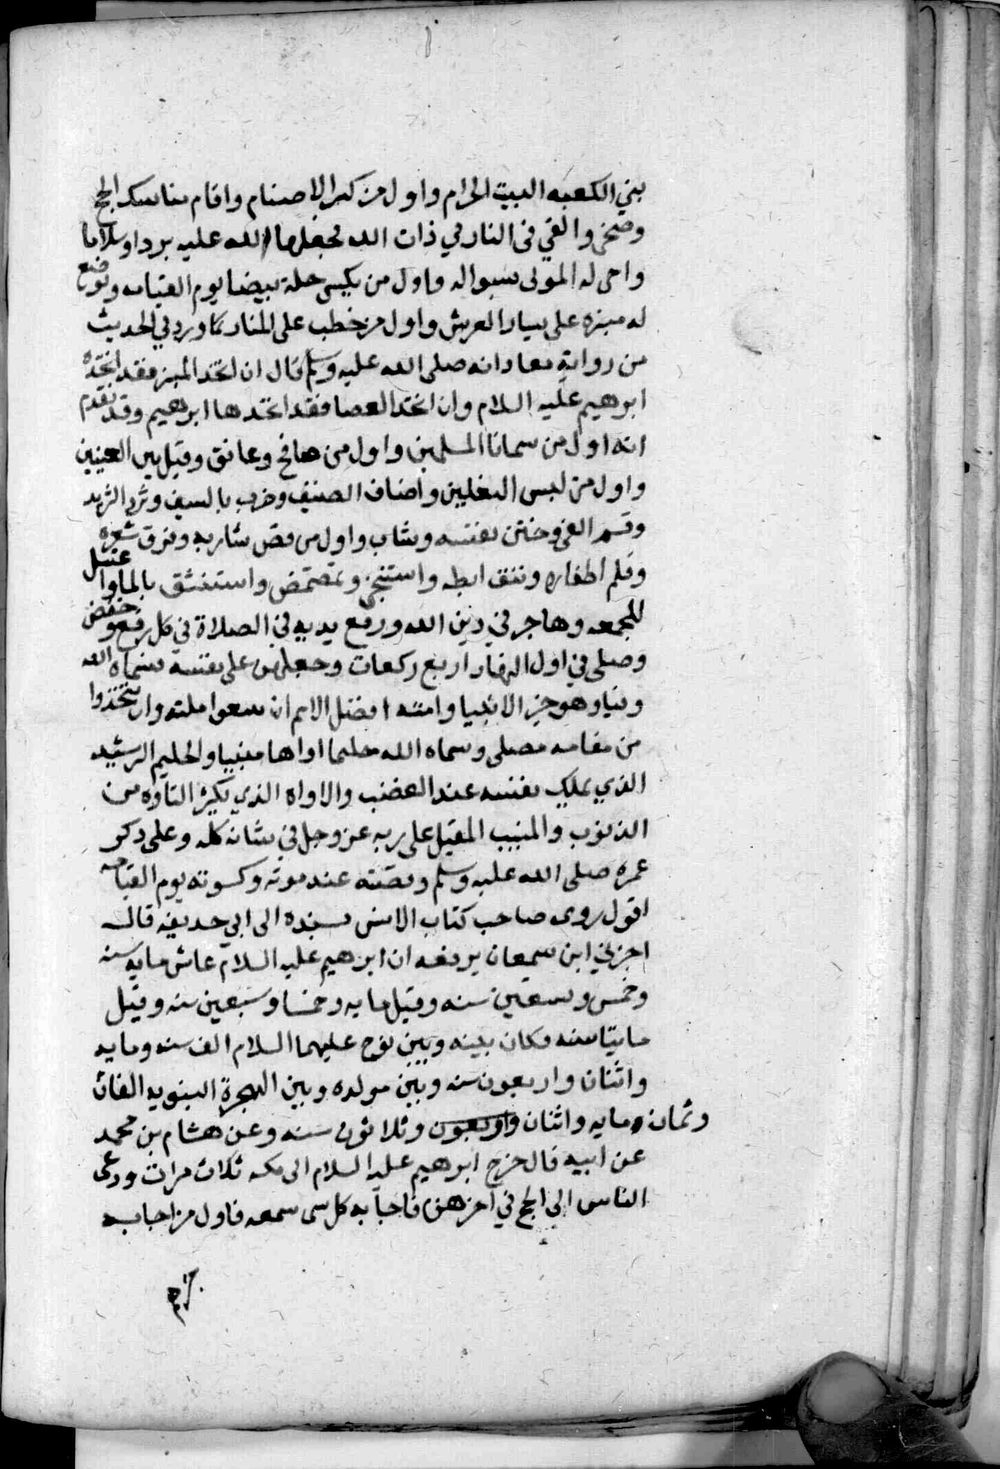 بني الكعبه البيت الحرام واول من كسر الاصنام واقام مناسك الحج
وضحى والقي في النار في ذات الله فجعلها الله عليه بردا وسلاما
واحى له الموتى بسواله واول من يكسى حلة بيضا يوم القيامه ويوضع
له منبره على يسار العرش واول من خطب على المنابر كما ورد في الحديث
من رواية معاد انه صلى الله عليه وسلم قال ان اتخد المنبر فقد اتخده
ابرهيم عليه السلام وان اتخد العصا فقد اتخدها ابرهيم وقد تقدم
انه اول من سمانا المسلمين واول من صافح وعانق وقبل بين العينين
واول من لبس النعلين واضاف الضيف وضرب بالسيف وثرد الثريد
وقسم الفي وختن نفسه وشاب واول من قص شاربه وفرق شعره
وقلم اظفاره ونتف ابطه واستنجى وتمضمض واستنشق بالما واغتسل
للجمعه وهاجر في دين الله ورفع يديه في الصلاة في كل رفع وخفض
وصلى في اول النهار اربع ركعات وجعلهن على نفسه فسماه الله
وفيا وهو خير الانبيا وامته افضل الامم ان يتبعوا ملته وان يتخذوا
من مقامه مصلى وسماه الله حليما اواها منيبا والحليم الرشيد
الذي يملك نفسه عند الغضب والاواه الذي يكثر التاوه من
الذنوب والمنيب المقبل على ربه عز وجل في شانه كله وعلى ذكر
عمره صلى الله عليه وسلم وقصته عند موته وكسوته يوم القيامه
اقول روى صاحب كتاب الانس بسنده الى ابي حديفه قال
اخبرني ابن سمعان يرفعه ان ابرهيم عليه السلام عاش مايه سنه
وخمس وسبعين سنه وقيل مايه وخمسا وسبعين سنه وقيل
مايتا سنه فكان بينه وبين نوح عليهما السلام الف سنه ومايه
واثنان واربعون سنه وبين مولده وبين الهجرة النبويه الفان
وثمان مايه واثنان واربعون وثلاثون سنه وعن هشام بن محمد
عن ابيه قال خرج ابرهيم عليه السلام الى مكه ثلاث مرات ودعى
الناس الى الحج في اخرهن فاجابه كل شى سمعه فاول من اجابه